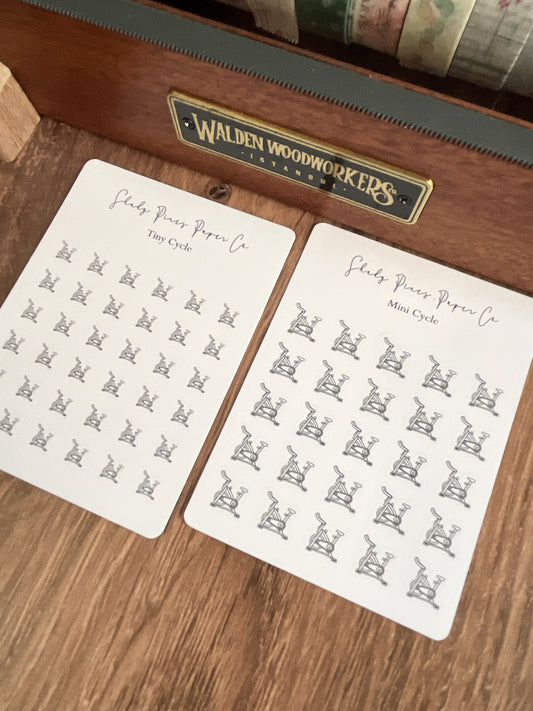 WALDEN WOODWORKERS
· ISTANBUL ·
Shady Pines Paper Co
Tiny Cycle
Shady Pines Paper Co
Mini Cycle